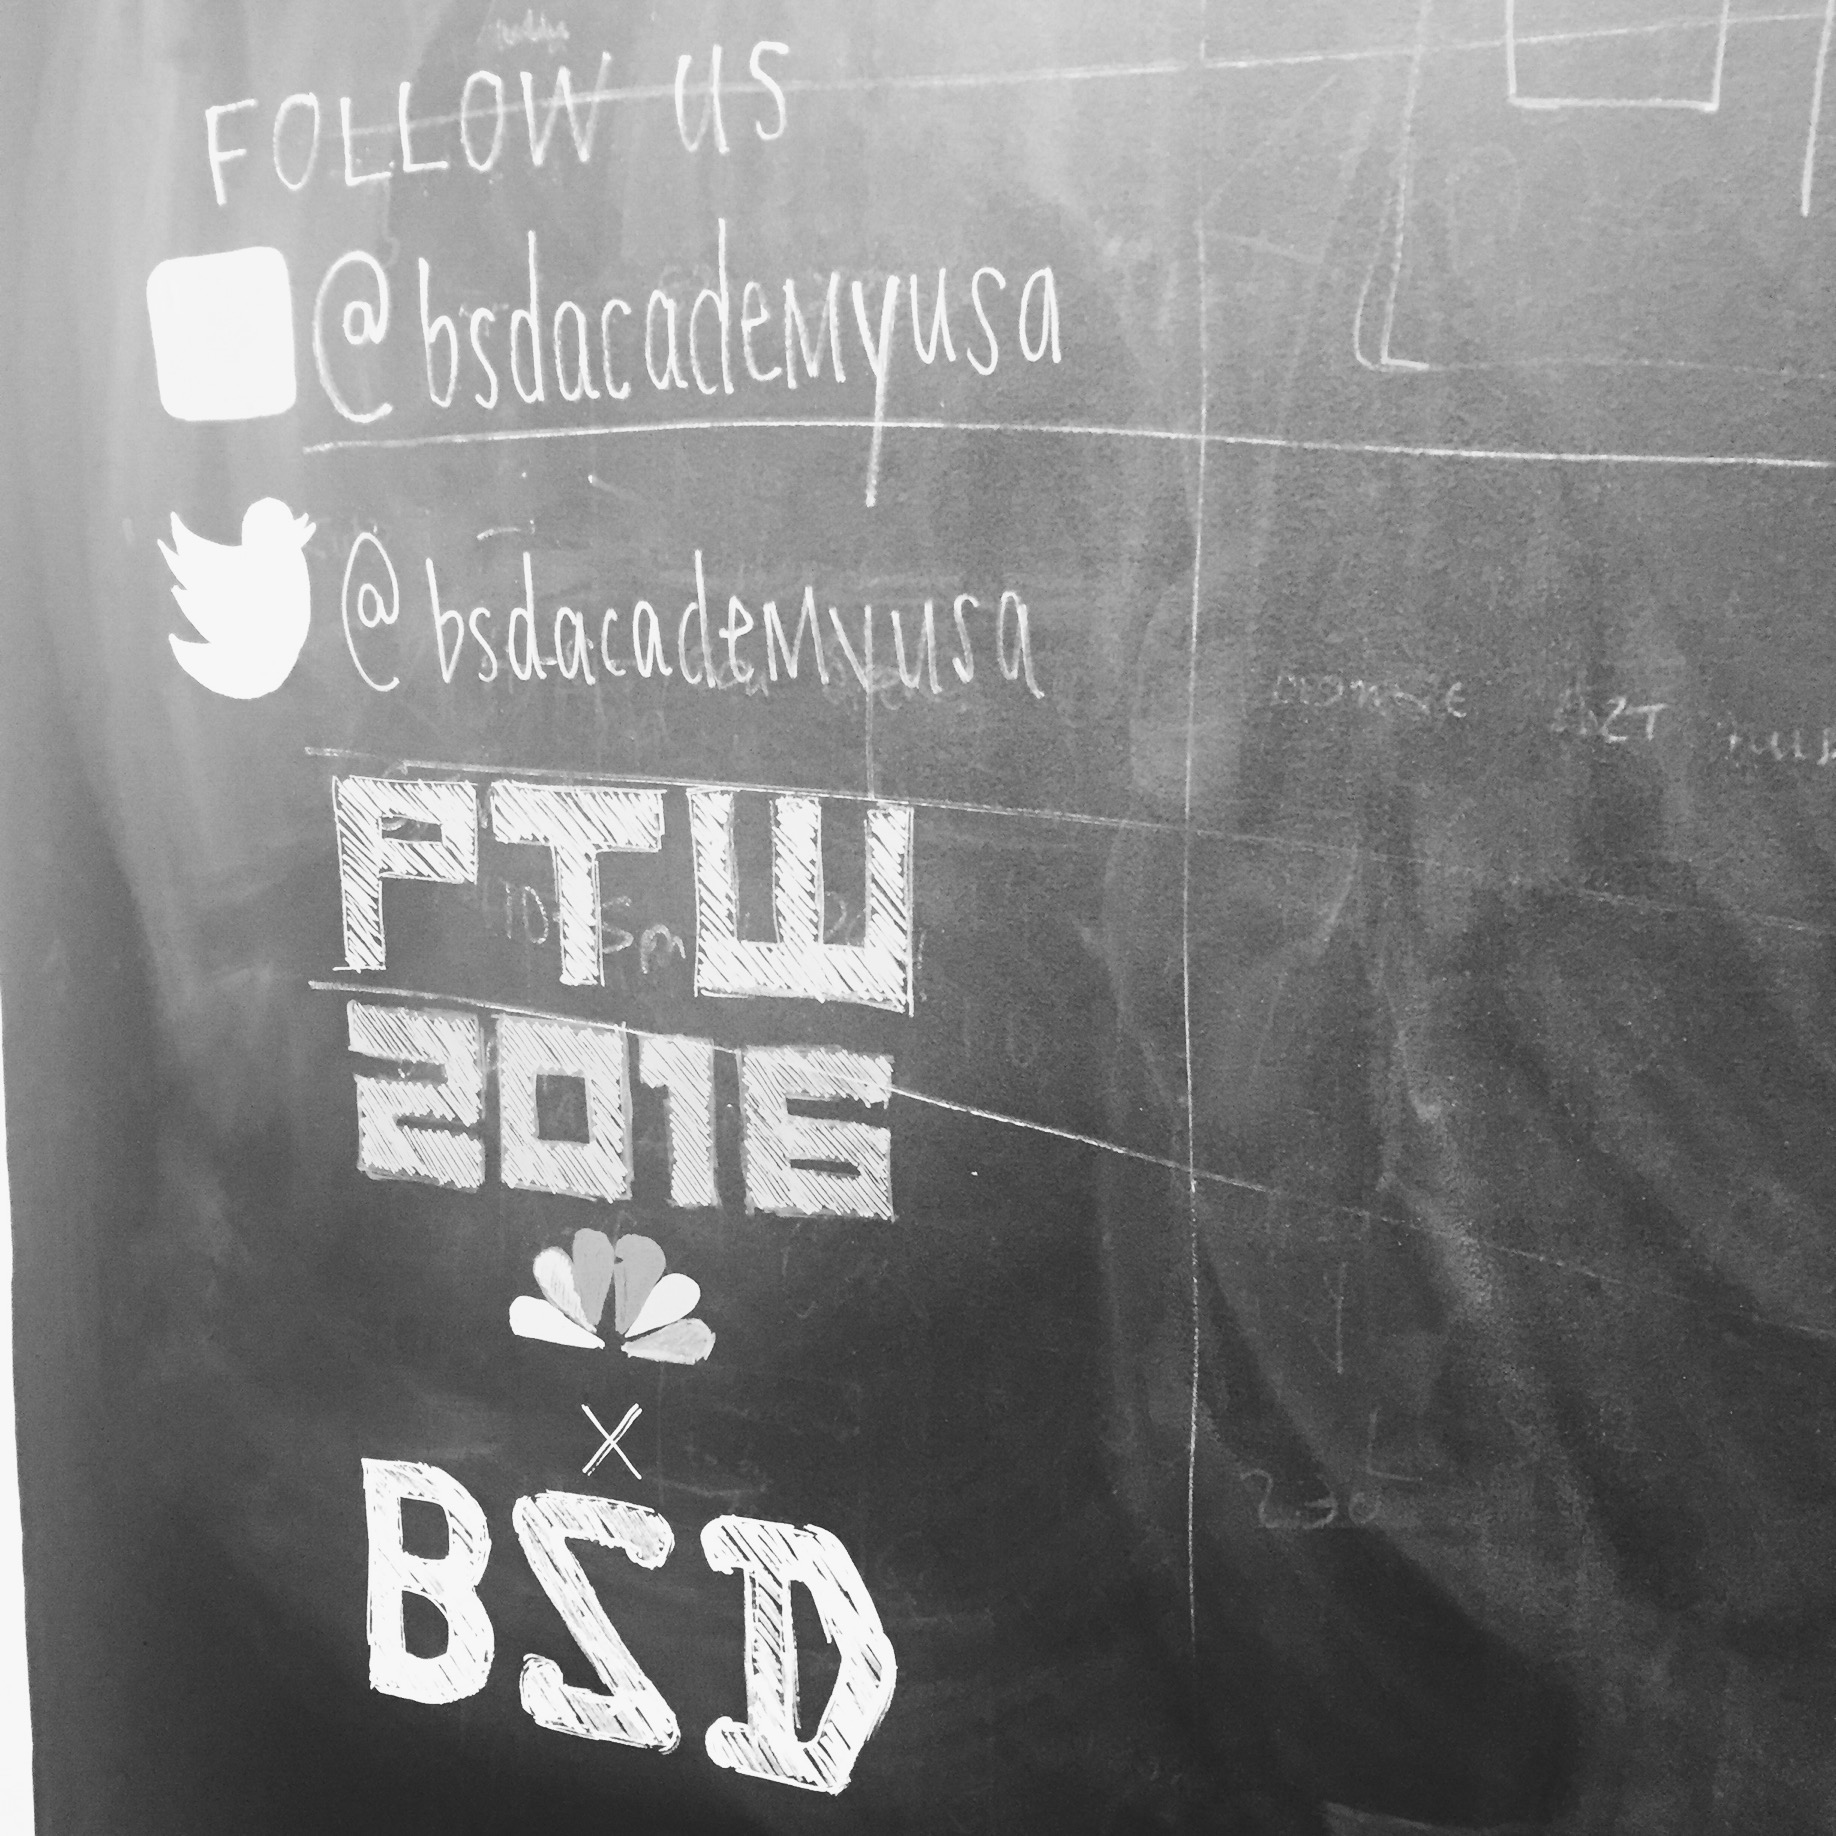 FOLLOW US
@bsdacademyusa
@bsdacademyusa
PTW
2016
X
BSD